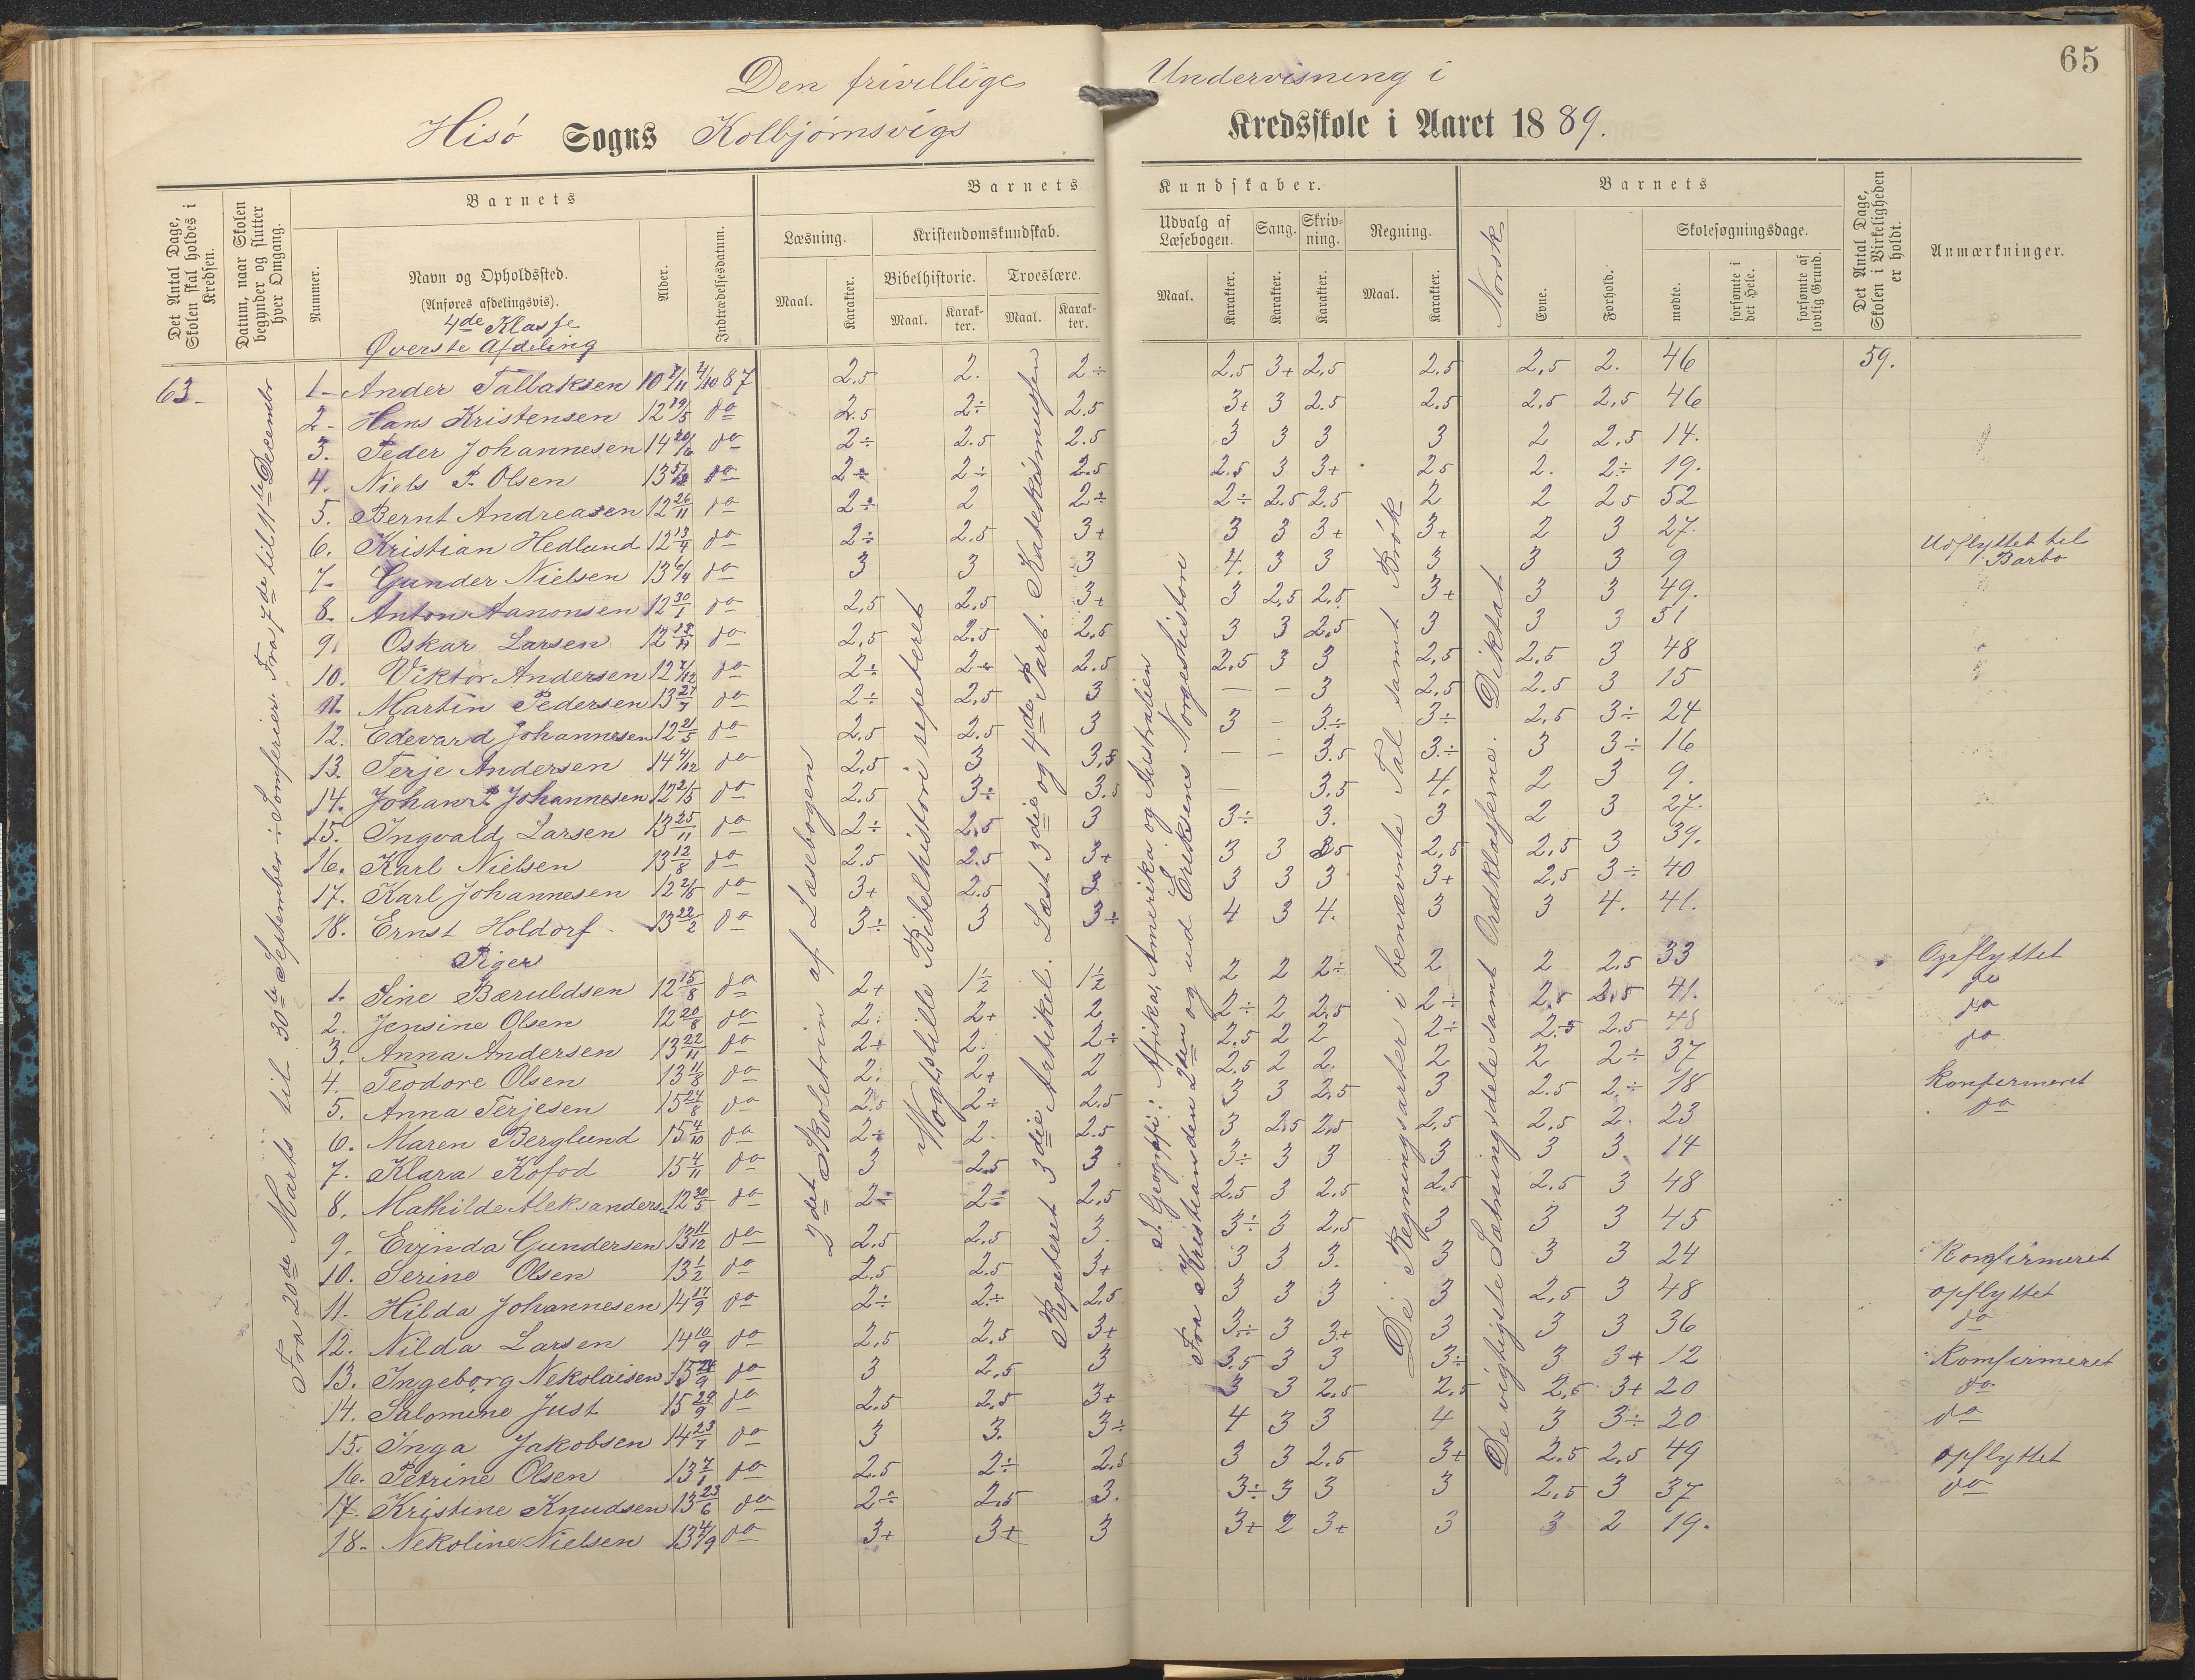 65
Den frivillige Undervisning i
Hisø Sogns Kolbjørnsvigs Kredsskole i Aaret 1889.
Det Antal Dage, Skolen skal holdes i Kredsen.
Datum, naar Skolen begynder og slutter hver Omgang.
Nummer.
Barnets
Navn og Opholdssted.
(Anføres afdelingsvis).
4de Klasse
Øverste Afdeling
Alder.
Indtrædelsesdatum.
Barnets Kundskaber.
Læsning.
Maal. Karakter.
Kristendomskundskab.
Bibelhistorie. Troeslære.
Maal. Karakter. Maal. Karakter.
Udvalg af Læsebogen.
Maal. Karakter.
Sang. Karakter.
Skrivning. Karakter.
Regning.
Maal. Karakter.
Norsk
Barnets
Evne. Forhold.
Skolesøgningsdage.
mødte. forsømte i det Hele. forsømte af lovlig Grund.
Det Antal Dage, Skolen i Virkeligheden er holdt.
Anmærkninger.
63.
Fra 20de Marts til 30te September ÷ Somferier. Fra 7de til 11te December
2det Skoletrin af Læsebogen
Vogts lille Bibelhistorie repeteret
Repeteret 3die Artikel. Læst 3die og 4de Part. Katekismusen
I Geografi: Afrika, Amerika og Australien
Fra Kristian den 2den og ud Eriksens Norgeshistorie
De 4 Regningsarter i benævnte Tal samt Brøk
De vigtigste Sætningsdele samt Ordklasserne. Diktat
1- Ander Tallaksen 10 4/10 87 2.5 2. 2÷ 2.5 3+ 2.5 2.5 2,5 2. 46 59.
2- Hans Kristensen 12 19/5 do 2.5 2÷ 2.5 3+ 3 2.5 2.5 2.5 2,5 46
3. Peder Johannesen 14 20/6 do 2÷ 2.5 2.5 3 3 3 3 2 2.5 14.
4. Niels P. Olsen 13 do 2÷ 2÷ 2.5 2.5 3 3+ 25 2. 2÷ 19.
5. Bernt Andreasen 12 26/11 do 2÷ 2 2÷ 2÷ 2.5 2.5 2 2 25 52
6. Kristian Hedlund 12 13/4 do 2÷ 2.5 3+ 3 3 3+ 3+ 2 3 27.
7- Gunder Nielsen 13 6/4 do 3 3 3 4. 3 3 3 3 3 9 Udflyttet til Barbo
8. Anton Aanonsen 12 30/1 do 2,5 2.5 3+ 3 2,5 2.5 3+ 3 3 49.
9. Oskar Larsen 12 do 2,5 2.5 2,5 3 3 2.5 3 3 3 51
10. Viktor Andersen 12 7/12 do 2÷ 2÷ 2.5 2,5 3 3 2,5 2.5 3 48
11. Martin Pedersen 13 27/7 do 2÷ 2,5 3 — – 3 2,5 2.5 3 15
12. Edevard Johannesen 12 21/5 do 2.5 2.5 3 3 – 3÷ 3÷ 2,5 3÷ 24
13. Terje Andersen 14 4/12 do 2,5 3 3,5 — – 3.5 3÷ 3 3÷ 16
14. Johan P. Johannesen 12 2/5 do 2.5 3÷ 3.5 — 3.5 4. 2 3 9.
15. Ingvald Larsen 13 25/11 do 2÷ 2,5 3 3÷ 3. 3 2 3 27.
16. Karl Nielsen 13 12/8 do 2.5 2.5 3+ 3 3 2,5 2,5 3 39.
17. Karl Johannesen 12 2/5 do 3+ 2.5 3 3 3 3 3+ 2,5 3÷ 40
18. Ernst Holdorf 13 22/2 do 3÷ 3 3÷ 4 3 4. 3 3 4. 41.
Piger
1. Sine Bæruldsen 12 15/8 do 2+ 1½ 1½ 2 2 2÷ 2 2 2.5 33 Opflyttet
2. Jensine Olsen 12 20/8 do 2. 2+ 2 2÷ 2 2.5 2÷ 2.5 2.5 41. do
3. Anna Andersen 13 22/11 do 2÷ 2. 2÷ 2.5 2 2 2÷ 2.5 2.5 48 do
4. Teodore Olsen 13 11/8 do 2. 2+ 2 2.5 2 2. 2 2 2÷ 37 do
5. Anna Terjesen 15 24/8 do 2.5 2÷ 2.5 3 3 2.5 3 2.5 2÷ 18 Konfirmeret
6. Maren Berglund 15 4/10 do 2÷ 2. 2.5 3 2.5 2,5 2,5 2,5 2. 23 do
7. Klara Kofod 15 4/11 do 3 2.5 3 3÷ 3 3 3 3 3. 14
8. Mathilde Aleksanders 12 30/5 do 2÷ 2÷ 2,5 2.5 3 2.5 2.5 2.5 3 48
9. Evinda Gundersen 13 11/12 do 2.5 2.5 3. 3÷ 3 2,5 3 3 3 45
10. Serine Olsen 13 1/2 do 2.5 2.5 3+ 3 3 3. 3 3 3 24 Konfirmeret
11. Hilda Johannesen 14 17/9 do 2÷ 2÷ 2.5 3 3 3 3 2,5 3 48 opflyttet
12. Nilda Larsen 14 10/9 do 2,5 2.5 3+ 3÷ 3 3+ 3 3 3 36 do
13. Ingeborg Nekolaisen 15 24/9 do 3 2,5 3 3.5 3 3 3÷ 3 3+ 12 Komfirmeret
14. Salomine Just 15 29/9 do 2.5 2,5 3+ 3 3 2.5 2.5 2,5 3+ 20 do
15. Inga Jakobsen 14 23/7 do 3 3. 3÷ 4 3 3 4 3 3÷ 20 do
16. Petrine Olsen 13 7/1 do 2.5 2÷ 2.5 3 3 2.5 3+ 2.5 2,5 49 opflyttet
17. Kristine Knudsen 13 23/6 do 2÷ 2.5 3. 3÷ 3 3 3 2,5 3 37 do
18. Nekoline Nielsen 13 4/9 do 3+ 3+ 3 3+ 2 3+ 3 3 2 19.